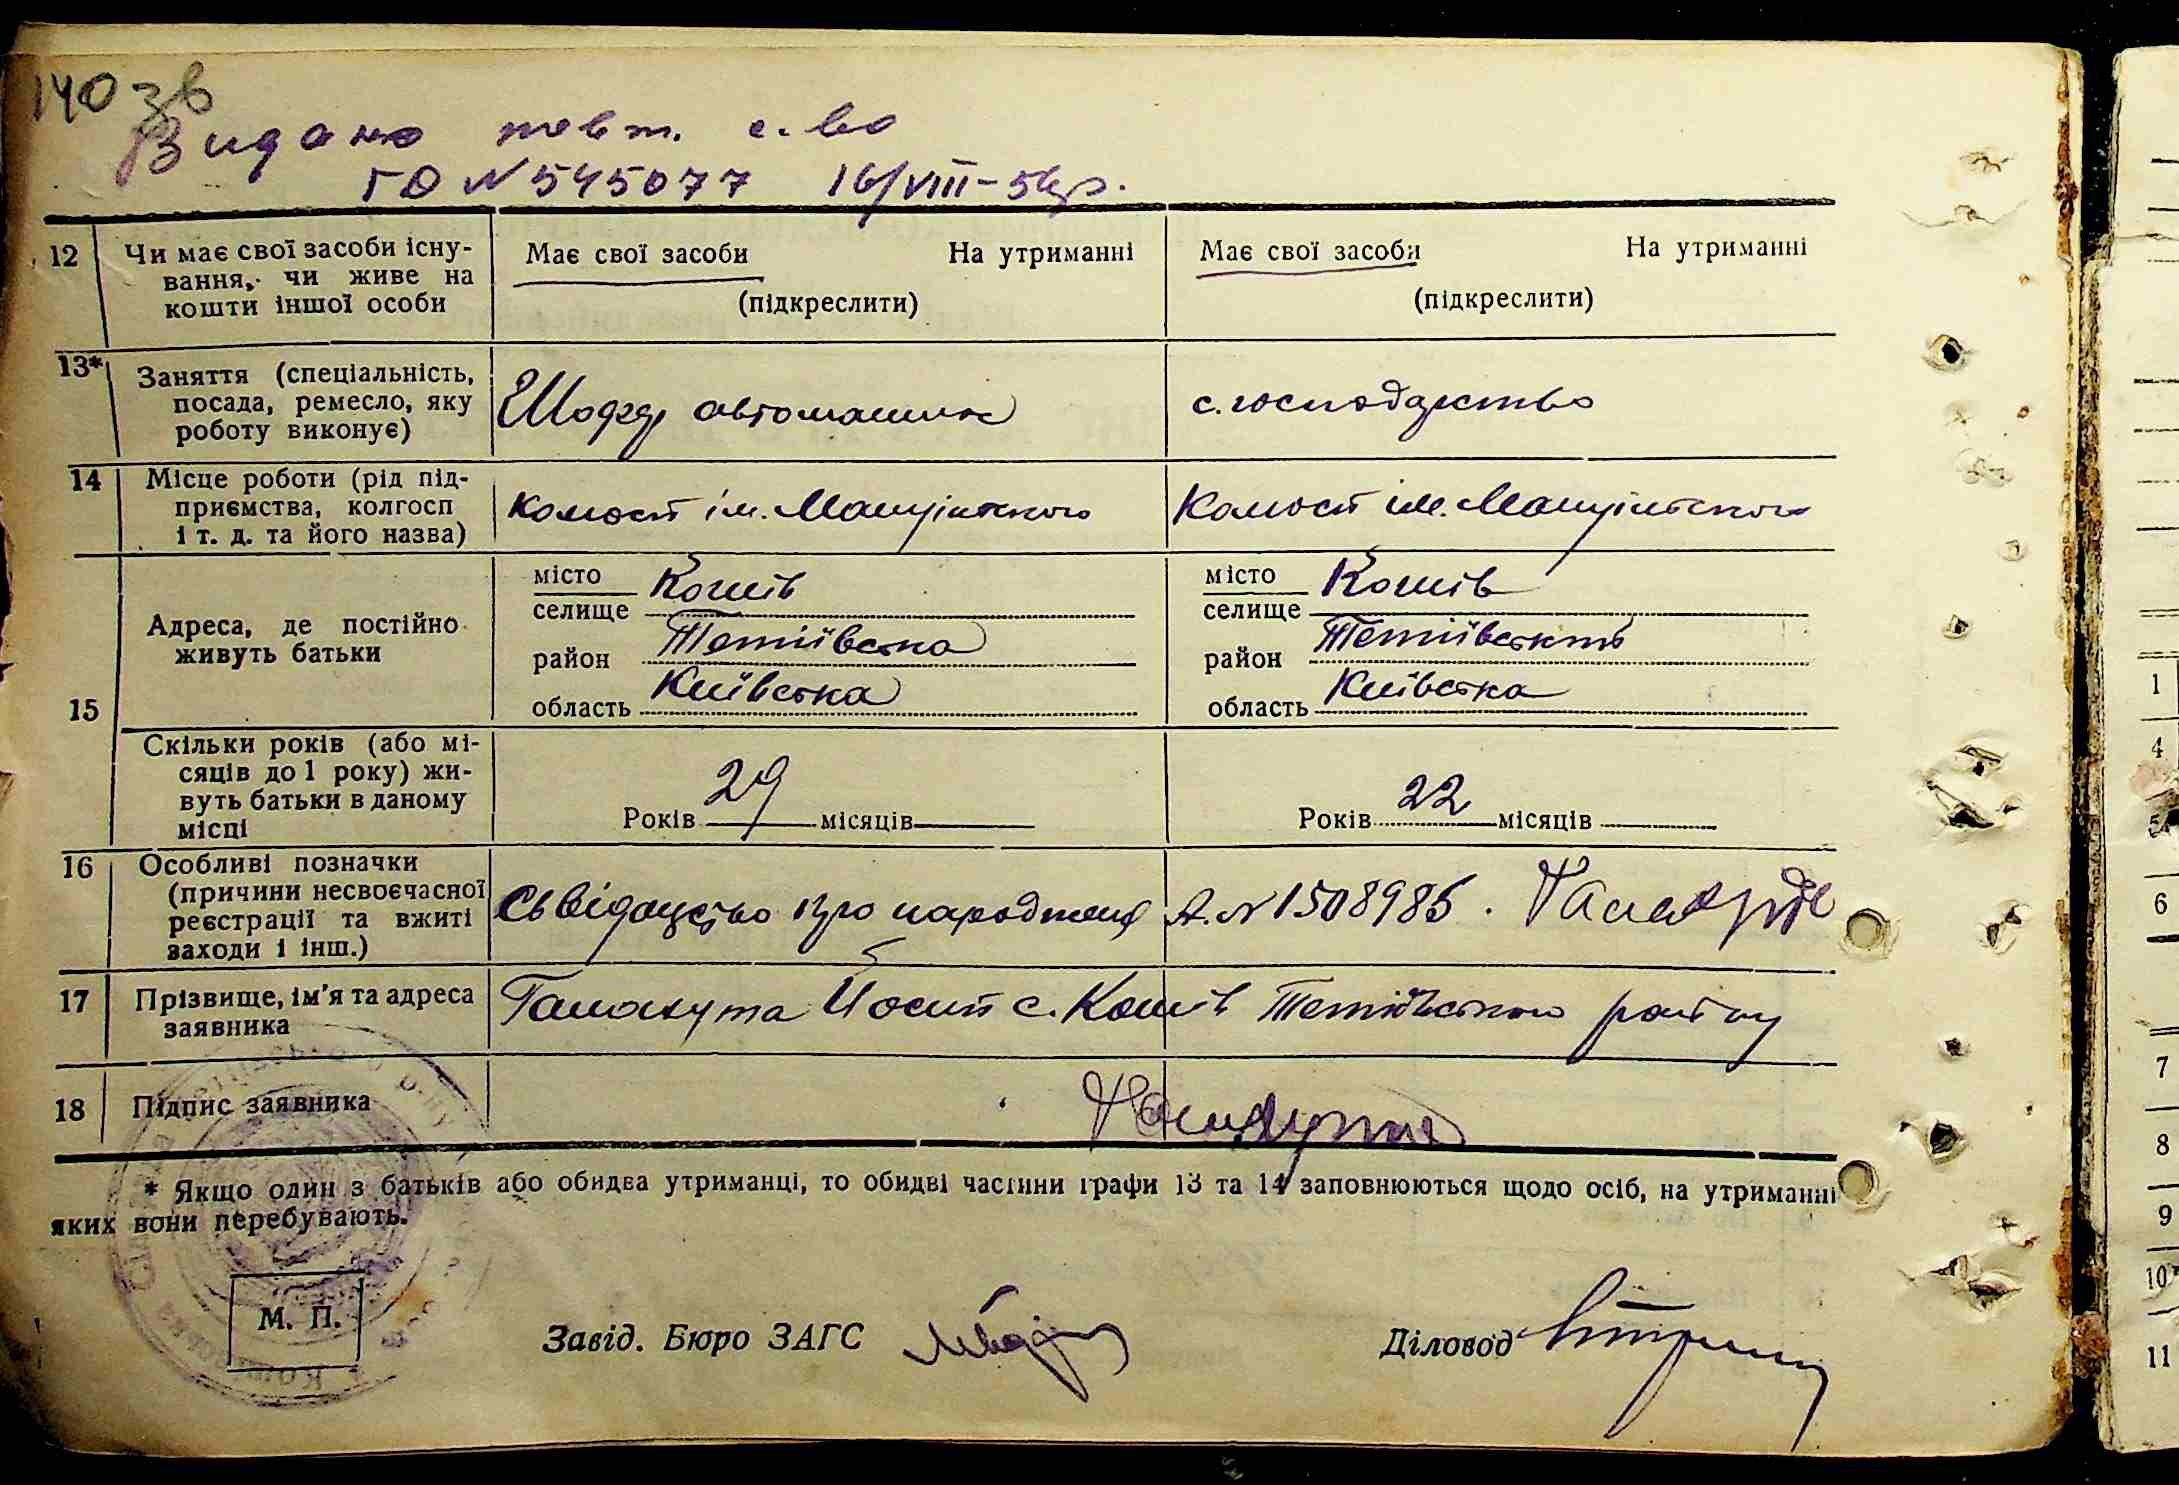 140 зв
Видано повт. с-во
ГО N 545077 16/VIII-56р.
12 Чи має свої засоби існу-
вання, чи живе на
кошти іншої особи
Має свої засоби На утриманні
(підкреслити)
Має свої засоби На утриманні
(підкреслити)
13* Заняття (спеціальність,
посада, ремесло, яку
роботу виконує)
Шофер автомашини
с. господарство
14 Місце роботи (рід під-
приємства, колгосп
і т. д. та його назва)
Колгосп ім. Мануїльского
Колгосп ім. Мануїльского
15 Адреса, де постійно
живуть батьки
місто
селище Кошів
район Тетіївська
область Київська
місто
селище Кошів
район Тетіївський
область Київська
Скільки років (або мі-
сяців до 1 року) жи-
вуть батьки в даному
місці
Років 29 місяців
Років 22 місяців
16 Особливі позначки
(причини несвоєчасної
реєстрації та вжиті
заходи і інш.)
Свідоцтво про народження А. N 1508985.
17 Прізвище, ім'я та адреса
заявника
Йосип с. Кошів Тетіївського району
18 Підпис заявника
* Якщо один з батьків або обидва утриманці, то обидві частини графи 13 та 14 заповнюються щодо осіб, на утриманні
яких вони перебувають.
М. П.
Завід. Бюро ЗАГС
Діловод
1
4
5
6
7
8
9
10
11